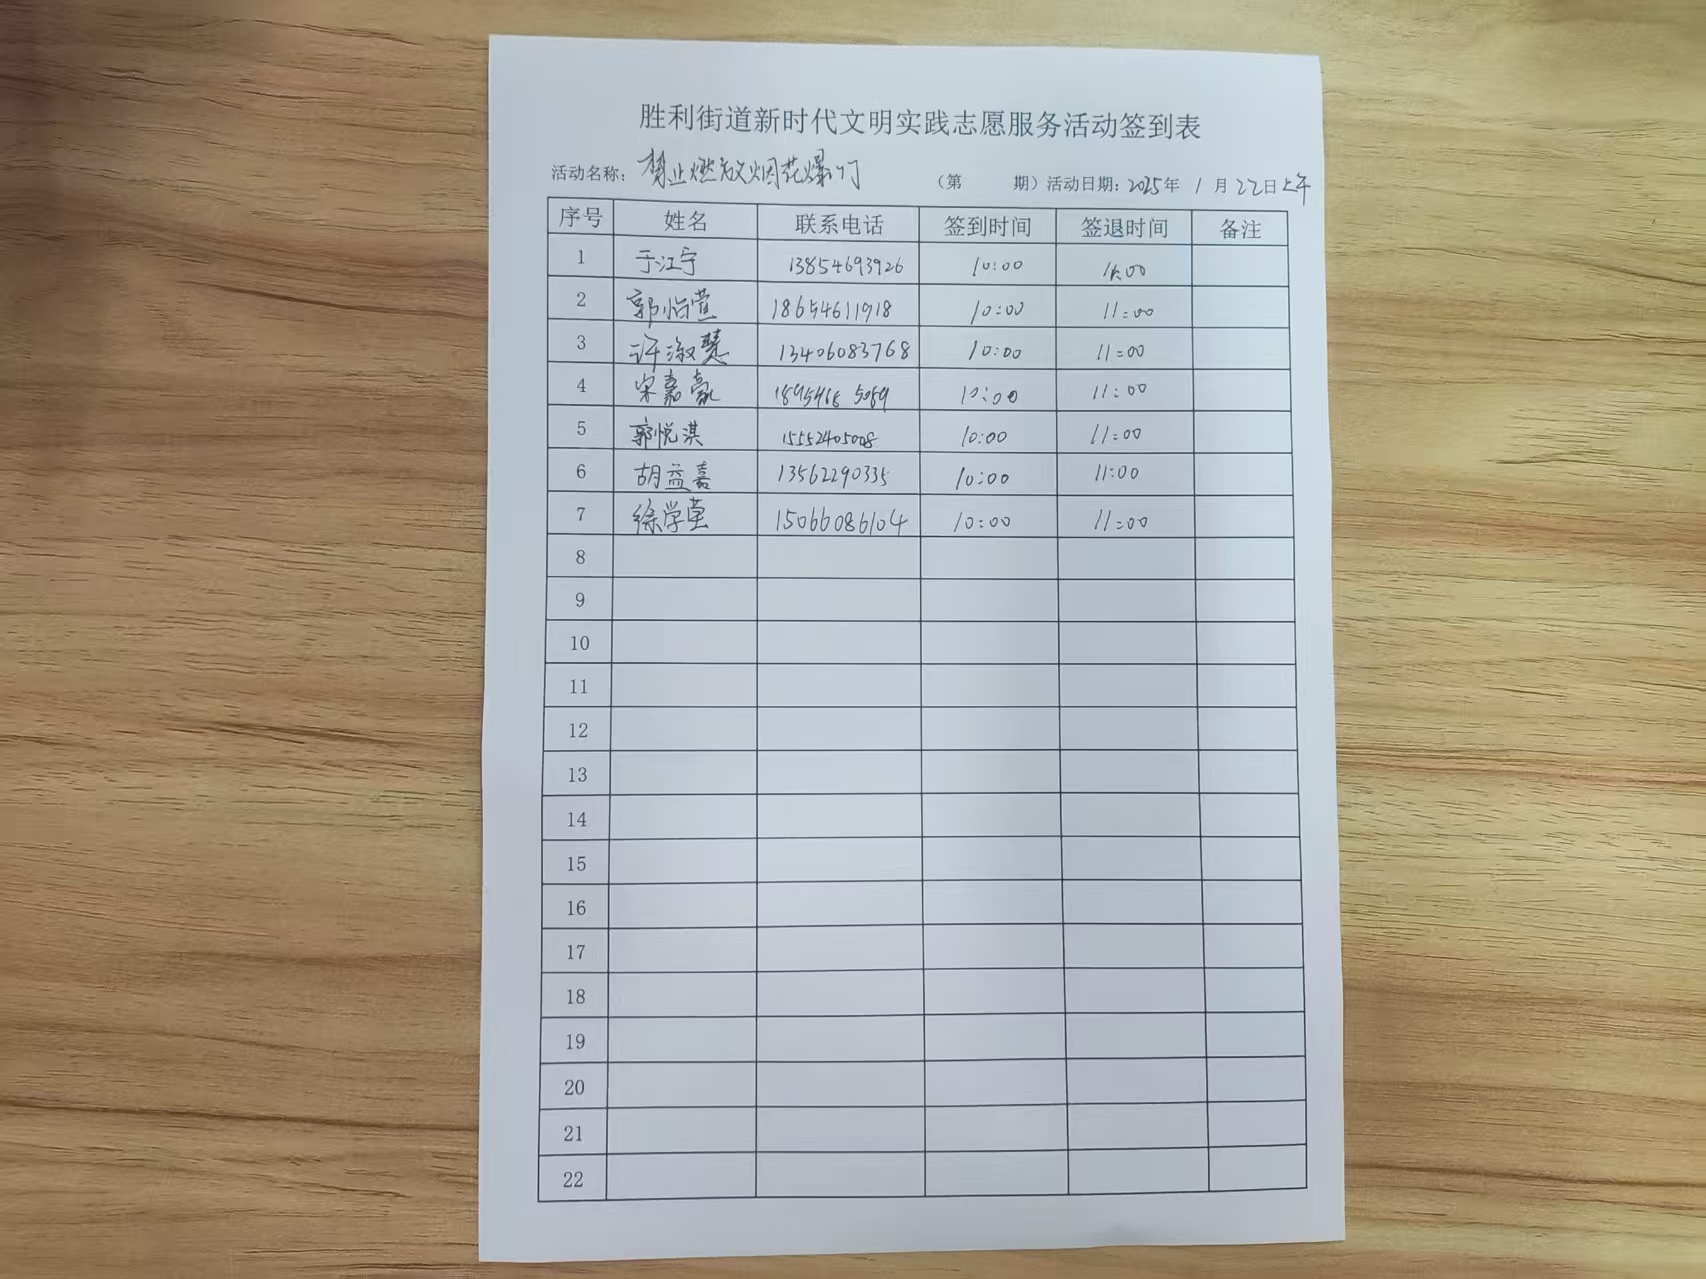 胜利街道新时代文明实践志愿服务活动签到表
活动名称：禁止燃放烟花爆竹 （第 期）活动日期：2025年 1 月 22日上午
序号 姓名 联系电话 签到时间 签退时间 备注
1 于江宁 13854693926 10:00 11:00
2 郭怡萱 18654611918 10:00 11:00
3 许淑慧 13406083768 10:00 11:00
4 宋嘉豪 10:00 11:00
5 郭悦淇 15552405008 10:00 11:00
6 胡益嘉 13562290335 10:00 11:00
7 徐学莹 15066086104 10:00 11:00
8
9
10
11
12
13
14
15
16
17
18
19
20
21
22